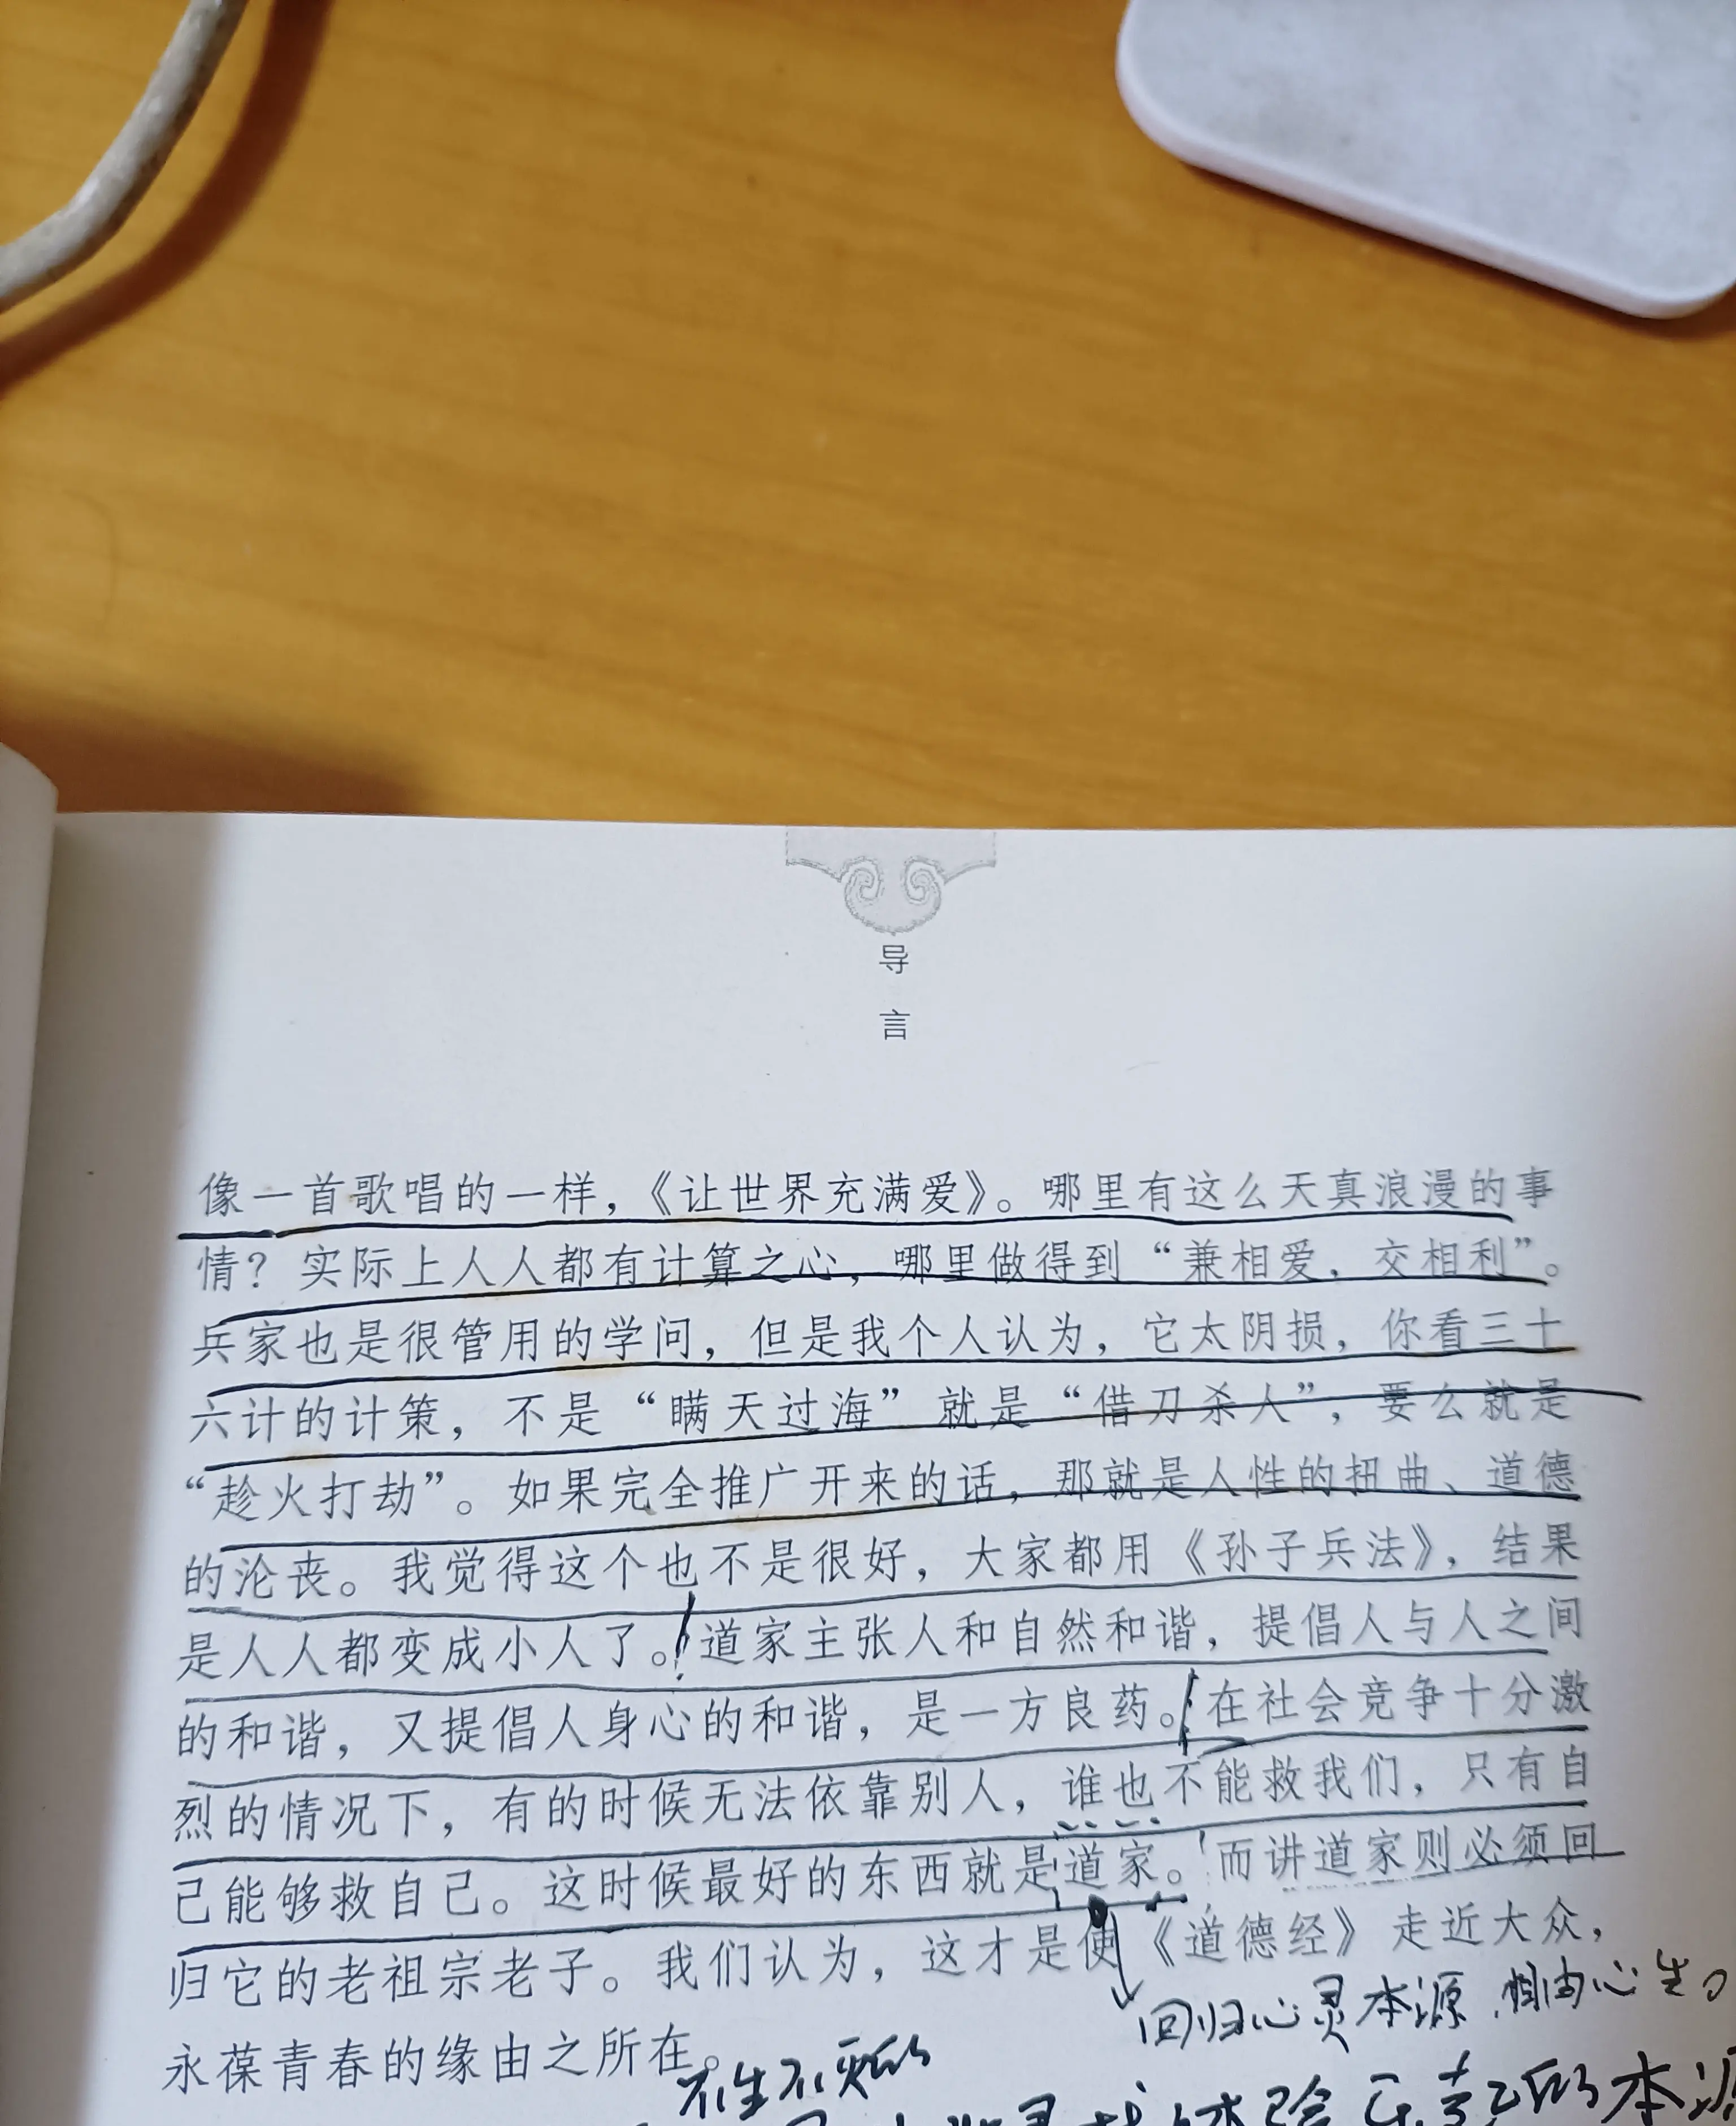 导
言
像一首歌唱的一样，《让世界充满爱》。哪里有这么天真浪漫的事
情？实际上人人都有计算之心，哪里做得到“兼相爱，交相利”。
兵家也是很管用的学问，但是我个人认为，它太阴损，你看三十
六计的计策，不是“瞒天过海”就是“借刀杀人”，要么就是
“趁火打劫”。如果完全推广开来的话，那就是人性的扭曲、道德
的沦丧。我觉得这个也不是很好，大家都用《孙子兵法》，结果
是人人都变成小人了。道家主张人和自然和谐，提倡人与人之间
的和谐，又提倡人身心的和谐，是一方良药。在社会竞争十分激
烈的情况下，有的时候无法依靠别人，谁也不能救我们，只有自
己能够救自己。这时候最好的东西就是道家。而讲道家则必须回
归它的老祖宗老子。我们认为，这才是使《道德经》走近大众，
回归心灵本源，相由心生
永葆青春的缘由之所在。
不生不灭的
体验
的本源